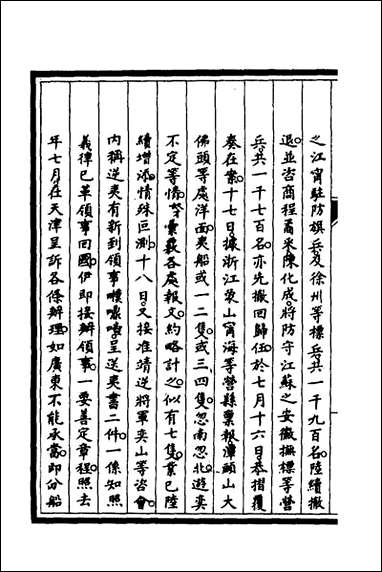 之江甯駐防旗兵及徐州等標兵共一千九百名陸續撤
退並咨商程矞采陳化成將防守江蘇之安徽撫標等營
兵共一千七百名亦先撤回歸伍於七月十六日恭摺覆
奏在案十七日據浙江象山甯海等營縣稟報潭頭山大
佛頭等處洋面夷船或一二隻或三四隻忽南忽北遊奕
不定等情等彙覈各處報文約略計之似有七隻業已陸
續增添情殊叵測十八日又接准靖逆將軍奕山等咨會
内稱逆夷有新到領事噗嚹喳呈送夷書二件一係知照
義律已革領事回國伊即接辦領事一要善定章程照去
年七月在天津呈訴各條辦理如廣東不能承當即分船